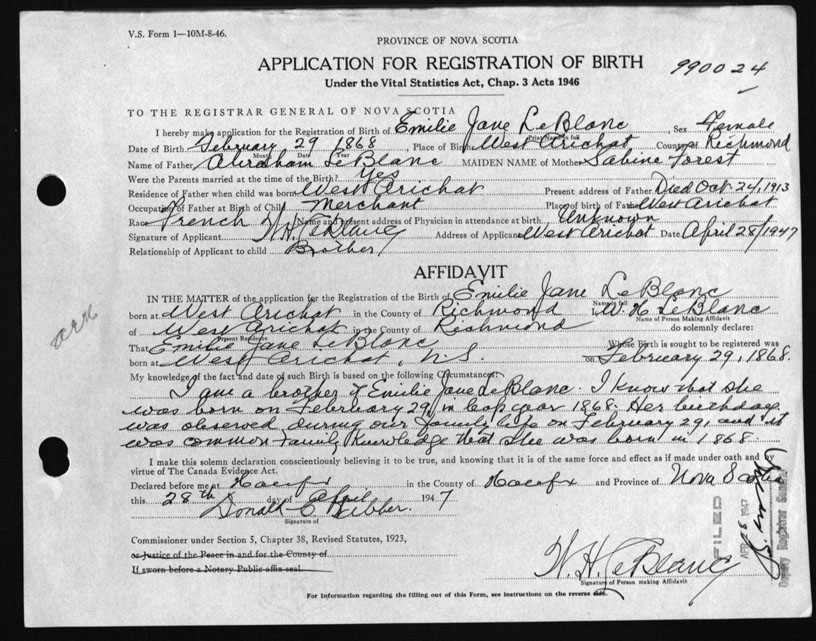 V.S. Form 1—10M-8-46.
PROVINCE OF NOVA SCOTIA
APPLICATION FOR REGISTRATION OF BIRTH
990024
Under the Vital Statistics Act, Chap. 3 Acts 1946
TO THE REGISTRAR GENERAL OF NOVA SCOTIA
I hereby make application for the Registration of Birth of Emilie Jane LeBlanc, Sex Female
Date of Birth February 29 1868, Place of Birth West Arichat County of Richmond
Month Date Year
Name of Father Abraham LeBlanc MAIDEN NAME of Mother Sabine Forest
Were the Parents married at the time of the Birth? Yes
Residence of Father when child was born West Arichat Present address of Father Died Oct. 24, 1913
Occupation of Father at Birth of Child Merchant Place of birth of Father West Arichat
Race French Name and present address of Physician in attendance at birth Unknown
Signature of Applicant W. H. LeBlanc Address of Applicant West Arichat Date April 28/1947
Relationship of Applicant to child Brother
AFFIDAVIT
IN THE MATTER of the application for the Registration of the Birth of Emilie Jane LeBlanc
Name in full
born at West Arichat in the County of Richmond I, W. H. LeBlanc
Name of Person Making Affidavit
of West Arichat in the County of Richmond do solemnly declare:
Present Residence
That Emilie Jane LeBlanc Whose Birth is sought to be registered was
born at West Arichat, N.S. on February 29, 1868.
My knowledge of the fact and date of such Birth is based on the following Circumstances:
I am a brother of Emilie Jane LeBlanc. I know that she
was born on February 29, in leap year 1868. Her birthday
was observed during our family life on February 29, and it
was common family knowledge that she was born in 1868.
I make this solemn declaration conscientiously believing it to be true, and knowing that it is of the same force and effect as if made under oath and by
virtue of The Canada Evidence Act.
Declared before me at Halifax in the County of Halifax and Province of Nova Scotia
this 28th day of April 1947
Donald C
Signature of
Commissioner under Section 5, Chapter 38, Revised Statutes, 1923,
or Justice of the Peace in and for the County of
If sworn before a Notary Public affix seal.
W. H. LeBlanc
Signature of Person making Affidavit
For Information regarding the filling out of this Form, see instructions on the reverse side.
FILED
1947
Deputy Registrar General